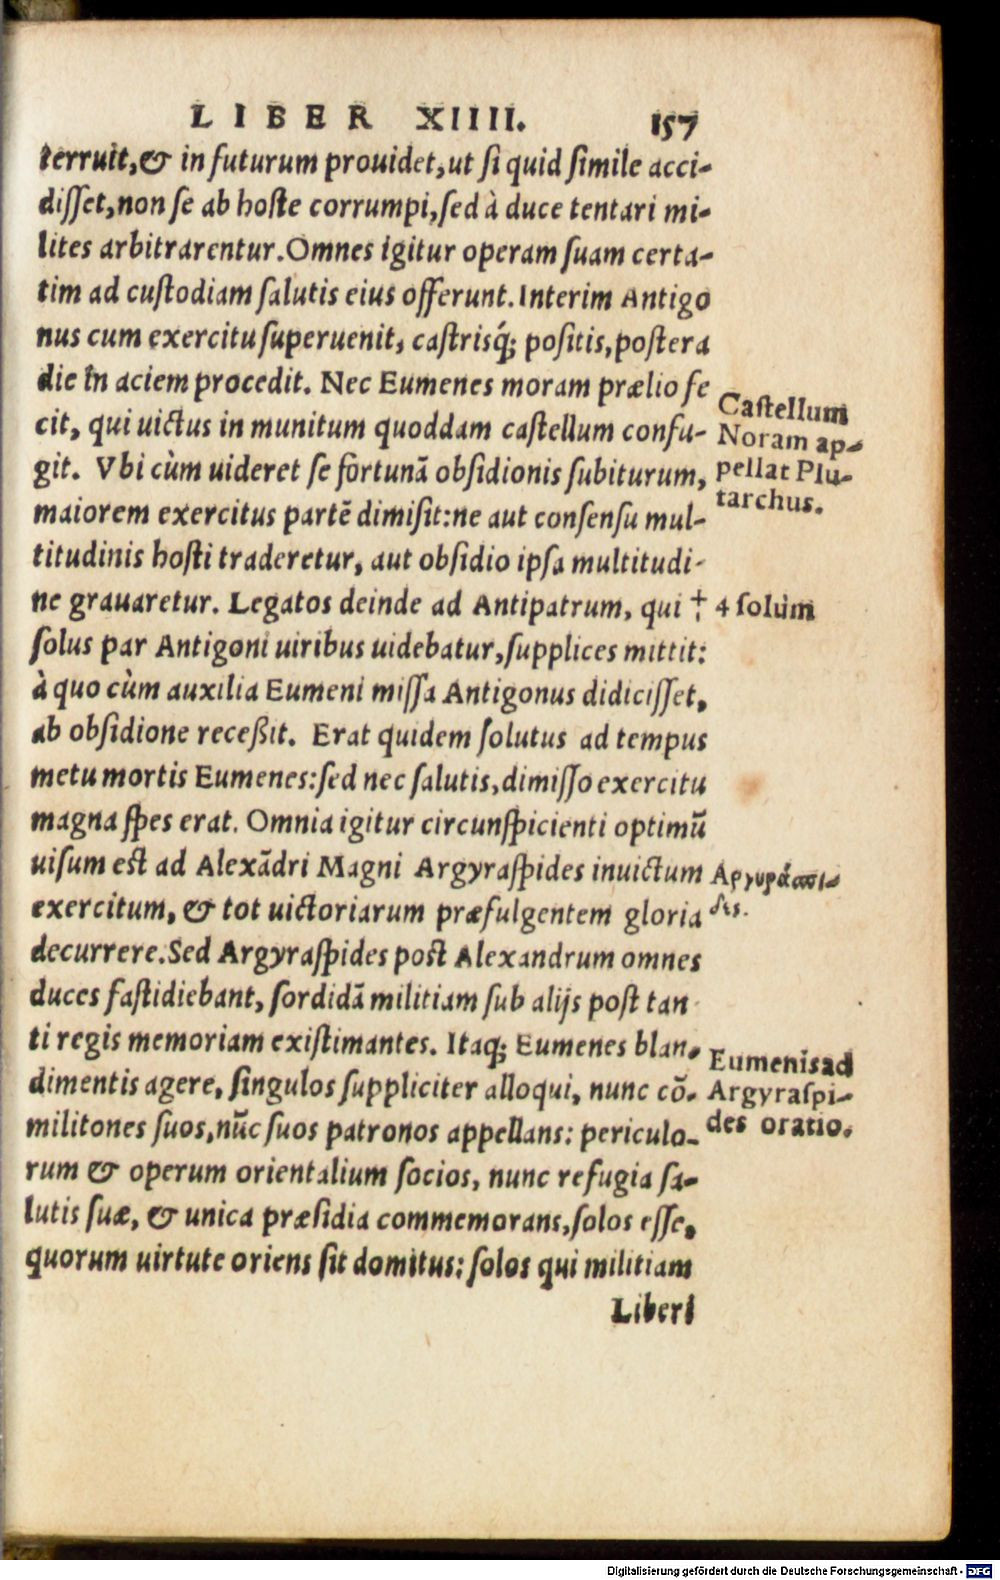 LIBER XIIII. 157
terruit, & in futurum prouidet, ut si quid simile acci-
disset, non se ab hoste corrumpi, sed à duce tentari mi-
lites arbitrarentur. Omnes igitur operam suam certa-
tim ad custodiam salutis eius offerunt. Interim Antigo
nus cum exercitu superuenit, castrisq́; positis, postera
die in aciem procedit. Nec Eumenes moram prælio fe
cit, qui uictus in munitum quoddam castellum confu-
git. Vbi cùm uideret se fortunã obsidionis subiturum,
maiorem exercitus partẽ dimisit: ne aut consensu mul-
titudinis hosti traderetur, aut obsidio ipsa multitudi-
ne grauaretur. Legatos deinde ad Antipatrum, qui †
solus par Antigoni uiribus uidebatur, supplices mittit:
à quo cùm auxilia Eumeni missa Antigonus didicisset,
ab obsidione receßit. Erat quidem solutus ad tempus
metu mortis Eumenes: sed nec salutis, dimisso exercitu
magna spes erat. Omnia igitur circunspicienti optimũ
uisum est ad Alexãdri Magni Argyraspides inuictum
exercitum, & tot uictoriarum præfulgentem gloria
decurrere. Sed Argyraspides post Alexandrum omnes
duces fastidiebant, sordidã militiam sub alijs post tan
ti regis memoriam existimantes. Itaq; Eumenes blan-
dimentis agere, singulos suppliciter alloqui, nunc cõ-
militones suos, nũc suos patronos appellans: periculo-
rum & operum orientalium socios, nunc refugia sa-
lutis suæ, & unica præsidia commemorans, solos esse,
quorum uirtute oriens sit domitus: solos qui militiam
Liberi
Castellum
Noram ap-
pellat Plu-
tarchus.
4 solùm
Αργυράσπι-
δες.
Eumenis ad
Argyraspi-
des oratio.
Digitalisierung gefördert durch die Deutsche Forschungsgemeinschaft - DFG